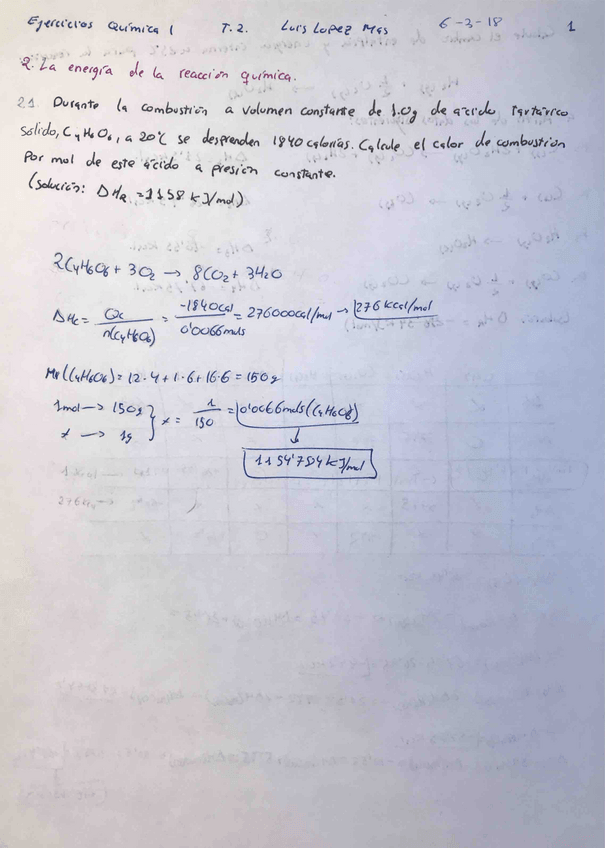 Ejercicios Química 1 T.2. Luis Lopez Mas 6-3-18 1
2. La energía de la reacción química.
2.1. Durante la combustión a volumen constante de 1.0g de ácido tartárico
sólido, C4H6O6, a 20ºC se desprenden 1840 calorías. Calcule el calor de combustión
Por mol de este ácido a presión constante.
(Solución: ΔHR = 1158 kJ/mol)
2C4H6O6 + 3O2 → 8CO2 + 3H2O
ΔHc = Qc / n(C4H6O6) = -1840cal / 0'0066mols = 276000cal/mol → 276 kcal/mol
Mr(C4H6O6) = 12·4 + 1·6 + 16·6 = 150g
1mol → 150g } x = 1/150 = 0'0066mols (C4H6O6)
x → 1g
↓
1154'784 kJ/mol